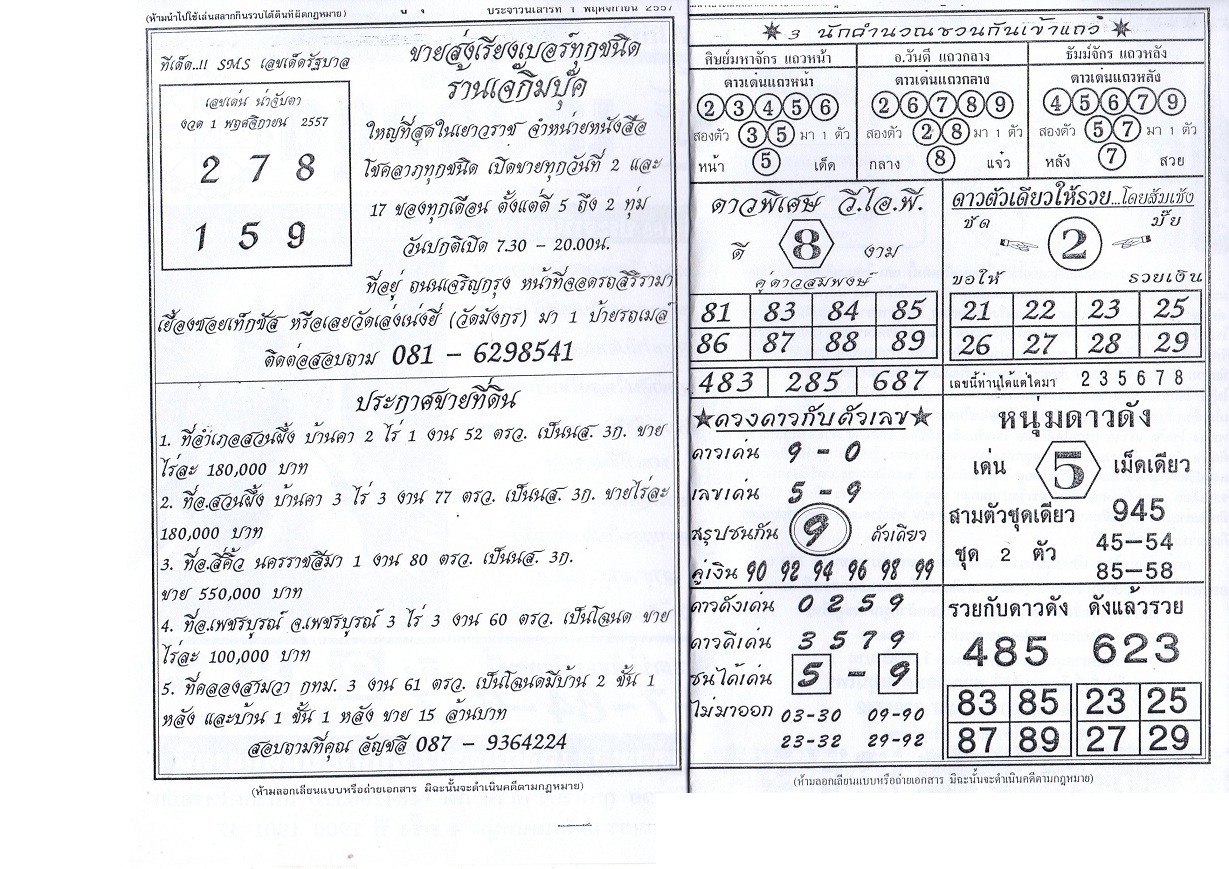 (ห้ามนำไปใช้เล่นสลากกินรวบใต้ดินที่ผิดกฎหมาย)
ประจำวันเสาร์ที่ 1 พฤศจิกายน 2557
ทีเด็ด..!! SMS เลขเด็ดรัฐบาล
เลขเด่น น่าจับตา
งวด 1 พฤศจิกายน 2557
2 7 8
1 5 9
ขายส่งเรียงเบอร์ทุกชนิด
ร้านเจ๊กิมบุ๊ค
ใหญ่ที่สุดในเยาวราช จำหน่ายหนังสือ
โชคลาภทุกชนิด เปิดขายทุกวันที่ 2 และ
17 ของทุกเดือน ตั้งแต่ตี 5 ถึง 2 ทุ่ม
วันปกติเปิด 7.30 - 20.00น.
ที่อยู่ ถนนเจริญกรุง หน้าที่จอดรถสิริรามา
เยื้องซอยเท็กซัส หรือเลยวัดเล่งเน่งยี่ (วัดมังกร) มา 1 ป้ายรถเมล์
ติดต่อสอบถาม 081 - 6298541
ประกาศขายที่ดิน
1. ที่อำเภอสวนผึ้ง บ้านคา 2 ไร่ 1 งาน 52 ตรว. เป็นนส. 3ก. ขาย
ไร่ละ 180,000 บาท
2. ที่อ.สวนผึ้ง บ้านคา 3 ไร่ 3 งาน 77 ตรว. เป็นนส. 3ก. ขายไร่ละ
180,000 บาท
3. ที่อ.สีคิ้ว นครราชสีมา 1 งาน 80 ตรว. เป็นนส. 3ก.
ขาย 550,000 บาท
4. ที่อ.เพชรบูรณ์ จ.เพชรบูรณ์ 3 ไร่ 3 งาน 60 ตรว. เป็นโฉนด ขาย
ไร่ละ 100,000 บาท
5. ที่คลองสามวา กทม. 3 งาน 61 ตรว. เป็นโฉนดมีบ้าน 2 ชั้น 1
หลัง และบ้าน 1 ชั้น 1 หลัง ขาย 15 ล้านบาท
สอบถามที่คุณ อัญชลี 087 - 9364224
(ห้ามลอกเลียนแบบหรือถ่ายเอกสาร มิฉะนั้นจะดำเนินคดีตามกฎหมาย)
3 นักคำนวณชวนกันเข้าแถว
ศิษย์มหาจักร แถวหน้า
ดาวเด่นแถวหน้า
2 3 4 5 6
สองตัว 3 5 มา 1 ตัว
หน้า 5 เด็ด
อ.วันดี แถวกลาง
ดาวเด่นแถวกลาง
2 6 7 8 9
สองตัว 2 8 มา 1 ตัว
กลาง 8 แจ๋ว
ธัมม์จักร แถวหลัง
ดาวเด่นแถวหลัง
4 5 6 7 9
สองตัว 5 7 มา 1 ตัว
หลัง 7 สวย
ดาวพิเศษ วี.ไอ.พี.
ดี 8 งาม
คู่ดาวสมพงษ์
81 83 84 85
86 87 88 89
483 285 687
ดาวตัวเดียวให้รวย...โดยสัมเช้ง
ชัด 2 ปั๊ย
ขอให้ รวยเงิน
21 22 23 25
26 27 28 29
เลขนี้ท่านได้แต่ใดมา 2 3 5 6 7 8
★ดวงดาวกับตัวเลข★
ดาวเด่น 9 - 0
เลขเด่น 5 - 9
สรุปชนกัน 9 ตัวเดียว
คู่เงิน 90 92 94 96 98 99
หนุ่มดาวดัง
เด่น 5 เม็ดเดียว
สามตัวชุดเดียว 945
ชุด 2 ตัว 45-54
85-58
ดาวดังเด่น 0 2 5 9
ดาวดีเด่น 3 5 7 9
ชนได้เด่น 5 - 9
ไม่มาออก 03-30 09-90
23-32 29-92
รวยกับดาวดัง ดังแล้วรวย
485 623
83 85 23 25
87 89 27 29
(ห้ามลอกเลียนแบบหรือถ่ายเอกสาร มิฉะนั้นจะดำเนินคดีตามกฎหมาย)